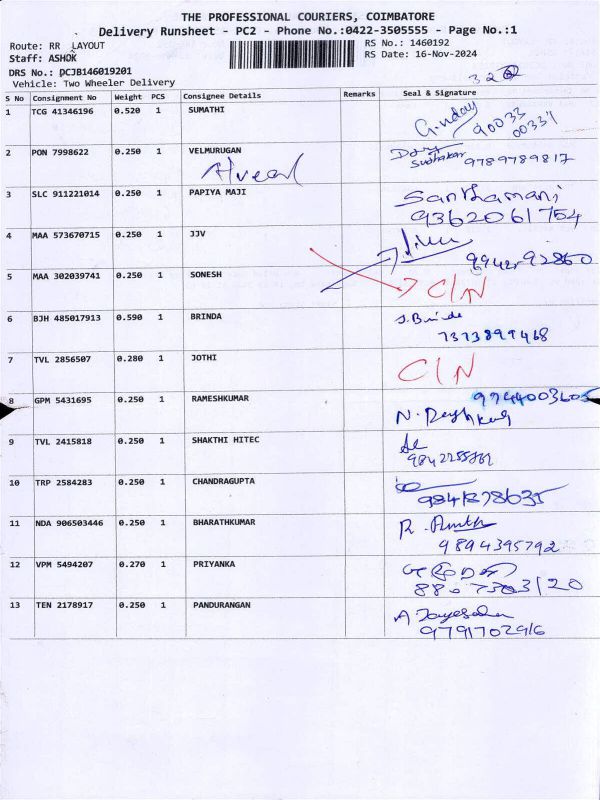 THE PROFESSIONAL COURIERS, COIMBATORE
Delivery Runsheet - PC2 - Phone No.:0422-3505555 - Page No.:1
Route: RR LAYOUT
RS No.: 1460192
Staff: ASHOK
RS Date: 16-Nov-2024
DRS No.: DCJB146019201
Vehicle: Two Wheeler Delivery
S No Consignment No Weight PCS Consignee Details Remarks Seal & Signature
1 TCG 41346196 0.520 1 SUMATHI
90033
00331
2 PON 7998622 0.250 1 VELMURUGAN
Sudhakar 9789789817
3 SLC 911221014 0.250 1 PAPIYA MAJI Santhamani
9362061754
4 MAA 573670715 0.250 1 JJV
92860
5 MAA 302039741 0.250 1 SONESH C/N
6 BJH 485017913 0.590 1 BRINDA S. Brinda
7373899468
7 TVL 2856507 0.280 1 JOTHI C/N
8 GPM 5431695 0.250 1 RAMESHKUMAR 9744003605
N.
9 TVL 2415818 0.250 1 SHAKTHI HITEC
10 TRP 2584283 0.250 1 CHANDRAGUPTA
9841378635
11 NDA 906503446 0.250 1 BHARATHKUMAR R.
9894395792
12 VPM 5494207 0.270 1 PRIYANKA
13 TEN 2178917 0.250 1 PANDURANGAN A
9791702916